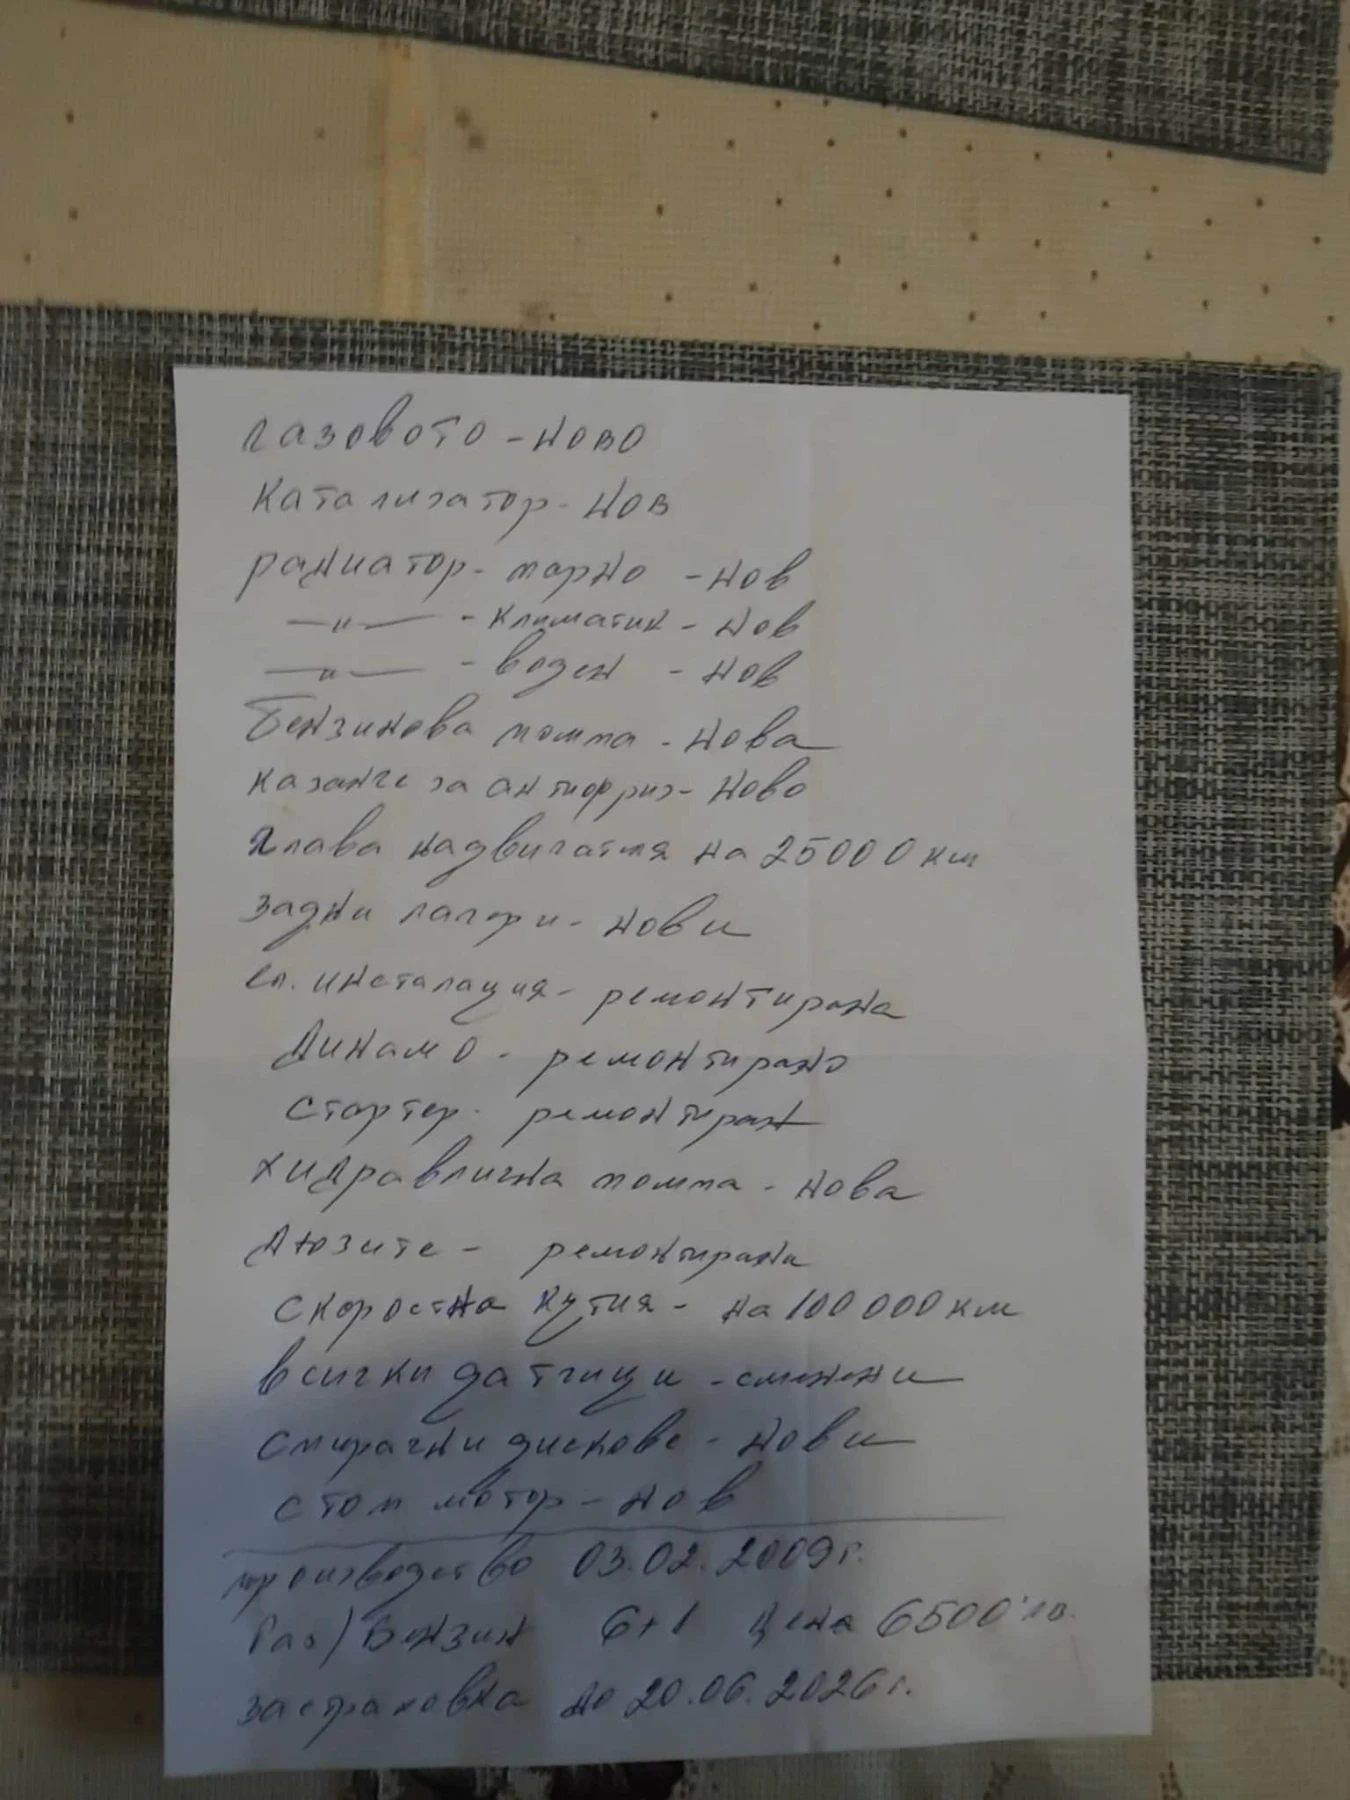 газовото - ново
Катализатор - нов
радиатор - парно - нов
—"— - климатик - нов
—"— - воден - нов
Бензинова помпа - нова
казанче за антифриз - ново
глава на двигателя на 25000 км
задни лагери - нови
ел. инсталация - ремонтирана
Динамо - ремонтирано
Стартер - ремонтиран
хидравлична помпа - нова
Дюзите - ремонтирани
скоростна кутия - на 100 000 км
всички датчици - сменени
спирачни дискове - нови
стоп мотор - нов
производство 03.02.2009 г.
Газ/Бензин 6+1 цена 6500 лв.
застраховка до 20.06.2026 г.